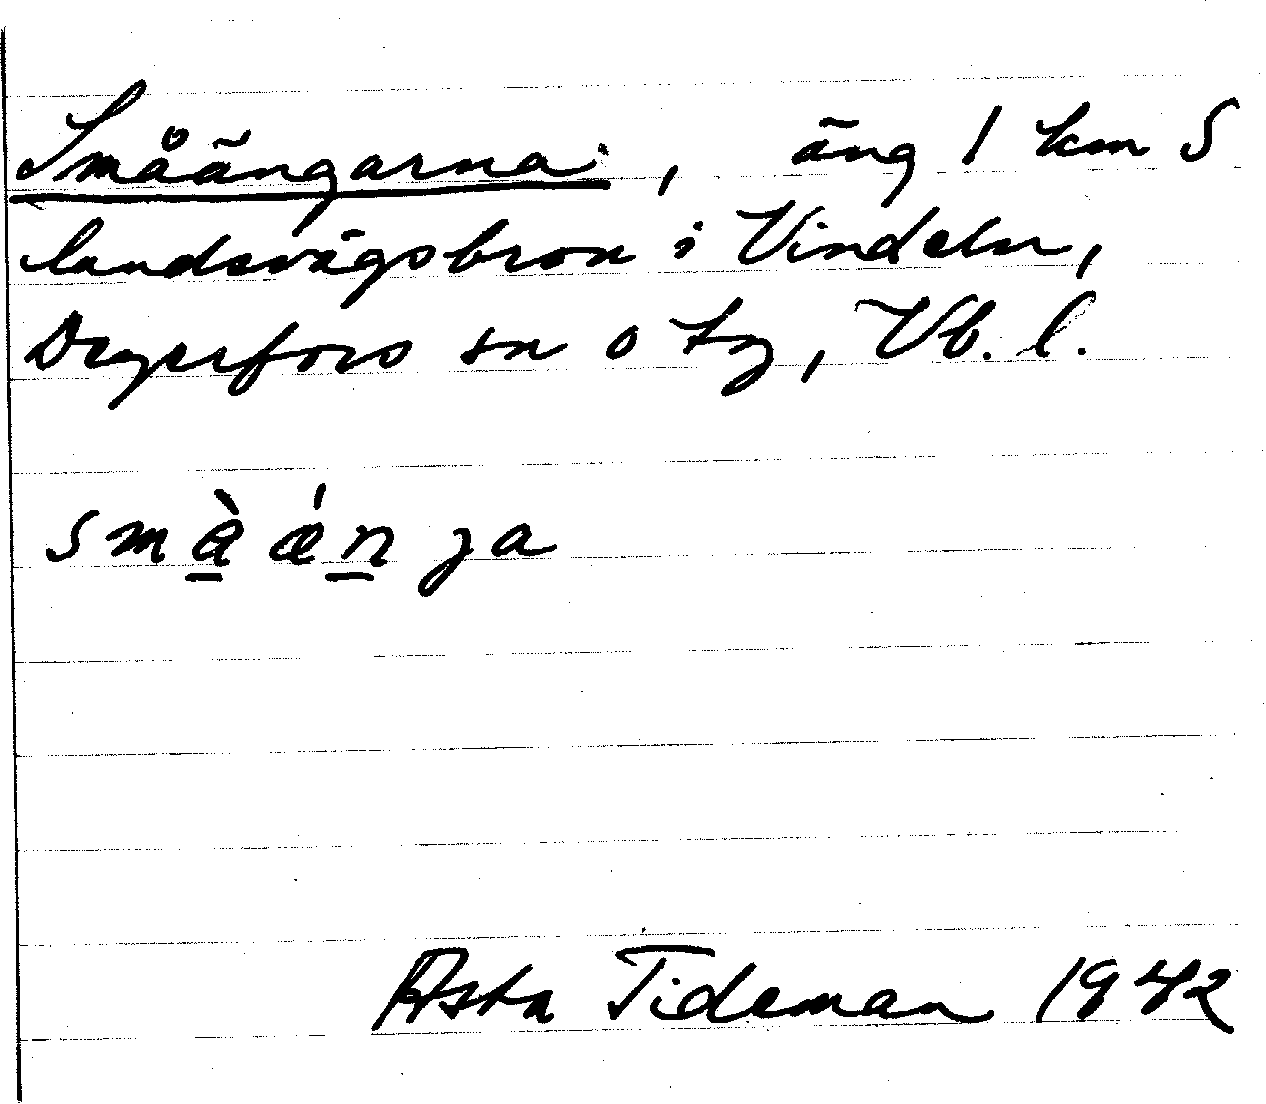 Småängarna, äng 1 km S
landsvägsbron i Vindeln,
Degerfors sn o tg, Vb. l.
småænja
Asta Tideman 1942